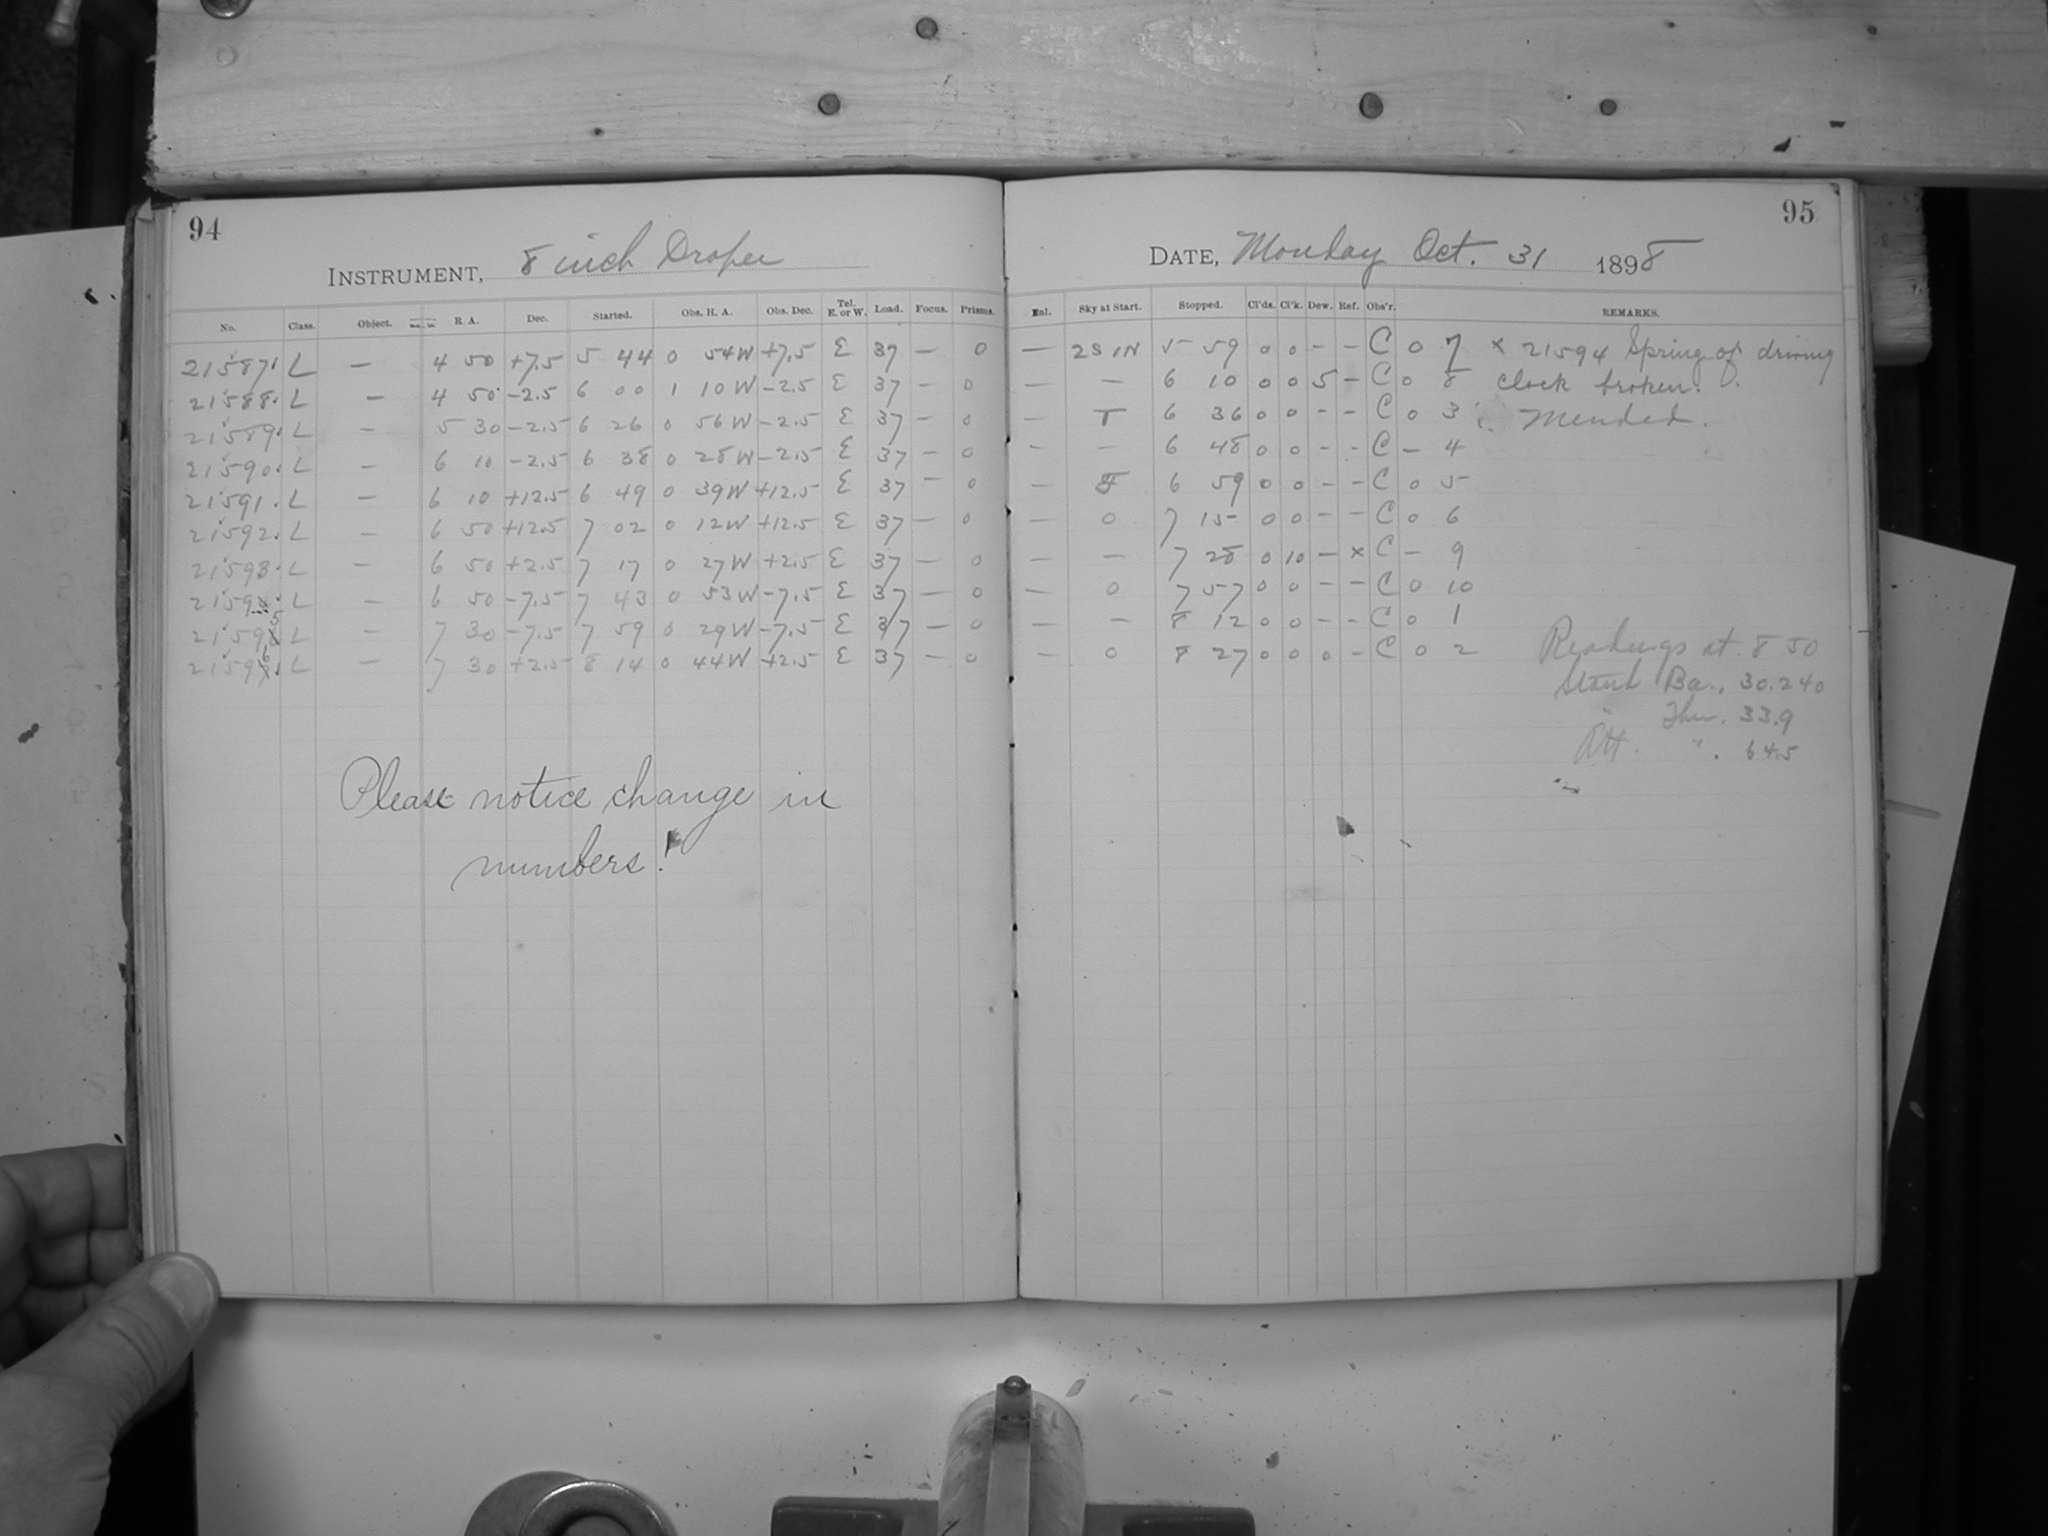 94
INSTRUMENT, 8 inch Draper
No. Class. Object. R. A. Dec. Started. Obs. H. A. Obs. Dec. Tel. E. or W. Load. Focus. Prisms.
21587 L — 4 50 +7.5 5 44 0 54W +7.5 E 37 — 0
21588 L — 4 50 -2.5 6 00 1 10W -2.5 E 37 — 0
21589 L — 5 30 -2.5 6 26 0 56W -2.5 E 37 — 0
21590 L — 6 10 -2.5 6 38 0 28W -2.5 E 37 — 0
21591 L — 6 10 +12.5 6 49 0 39W +12.5 E 37 — 0
21592 L — 6 50 +12.5 7 02 0 12W +12.5 E 37 — 0
21593 L — 6 50 +2.5 7 17 0 27W +2.5 E 37 — 0
21594 L — 6 50 -7.5 7 43 0 53W -7.5 E 37 — 0
21595 L — 7 30 -7.5 7 59 0 29W -7.5 E 37 — 0
21596 L — 7 30 +2.5 8 14 0 44W +2.5 E 37 — 0
Please notice change in
numbers!
95
DATE, Monday Oct. 31 1898
Enl. Sky at Start. Stopped. Cl'ds. Cl'k. Dew. Ref. Obs'r. REMARKS.
— 2S 1N 5 59 0 0 - - C 0 7 x 21594 Spring of driving
— — 6 10 0 0 5 - C 0 8 clock broken.
— T 6 36 0 0 - - C 0 3 Mended.
- - 6 48 0 0 - - C — 4
— 6 59 0 0 - - C 0 5
— 0 7 15 0 0 - - C 0 6
— — 7 28 0 10 — x C — 9
— 0 7 57 0 0 - - C 0 10
— — 8 12 0 0 - - C 0 1
— 0 8 27 0 0 0 - C 0 2
Readings at 8 50
Stand Ba., 30.240
" Ther. 33.9
Att. " 64.5